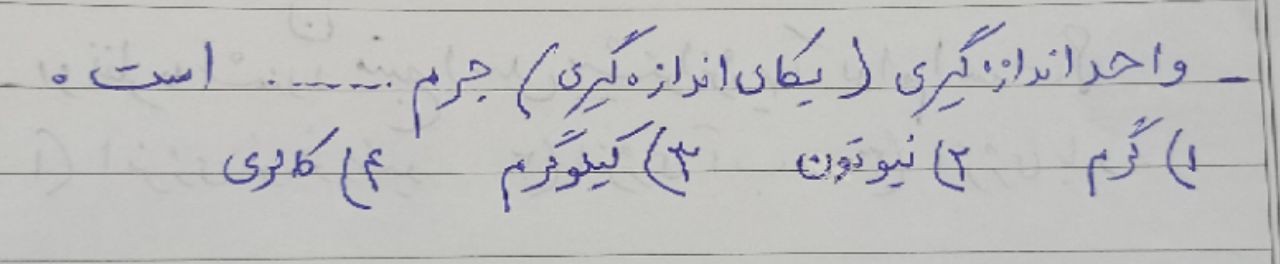 - واحد اندازه گیری (یکای اندازه گیری) جرم ....... است .
۱) گرم ۲) نیوتون ۳) کیلوگرم ۴) کالری